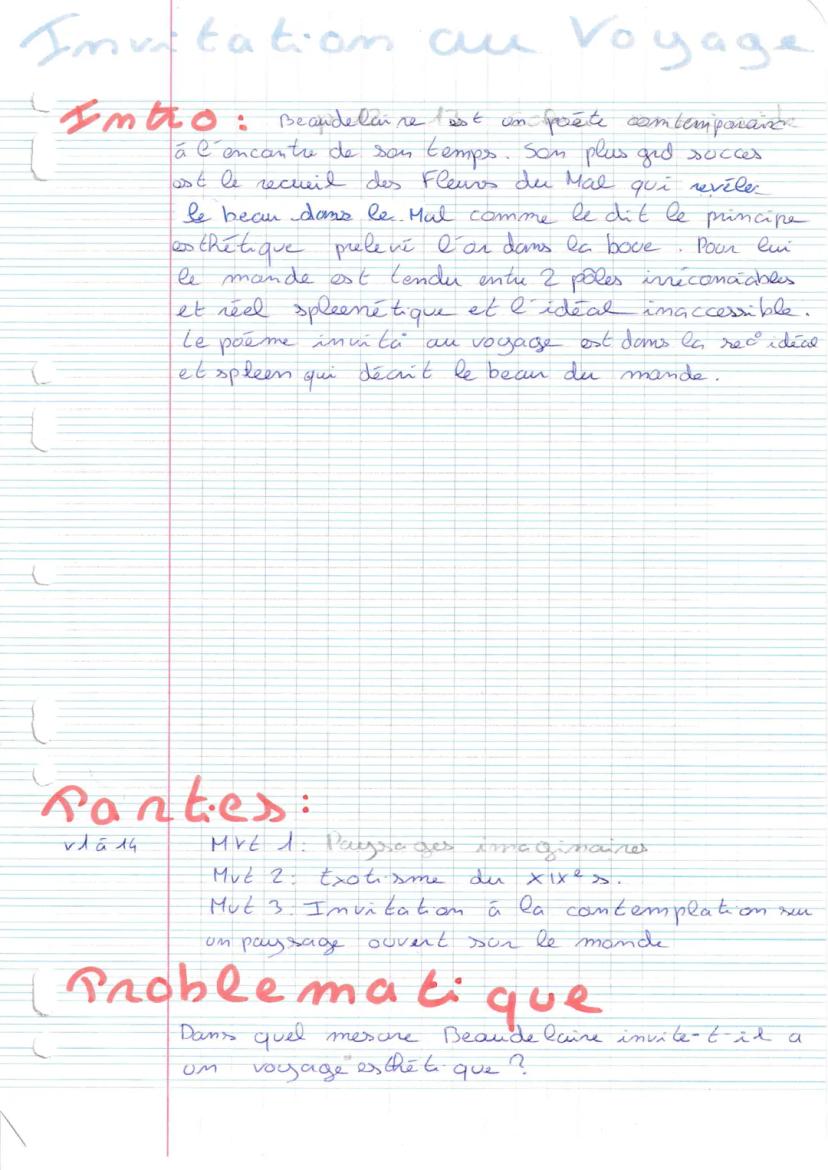 Invitation au Voyage
Intro : Beaudelaire est un poète contemporaire
à l'encontre de son temps. Son plus grd succes
est le recueil des Fleurs du Mal qui revèle
le beau dans le Mal comme le dit le principe
esthétique prelevé l'or dans la boue. Pour lui
le monde est tendu entre 2 pôles irréconciables
et réel spleenétique et l'idéal inaccessible.
Le poème invita au voyage est dans la sec° idéal
et spleen qui décrit le beau du monde.
Parties :
v1 à 14 Mvt 1 : Paysages imaginaires
Mvt 2 : Exotisme du XIXe s.
Mvt 3 : Invitation à la contemplation sur
un paysage ouvert sur le monde
Problematique
Dans quel mesure Beaudelaire invite-t-il a
un voyage esthétique ?